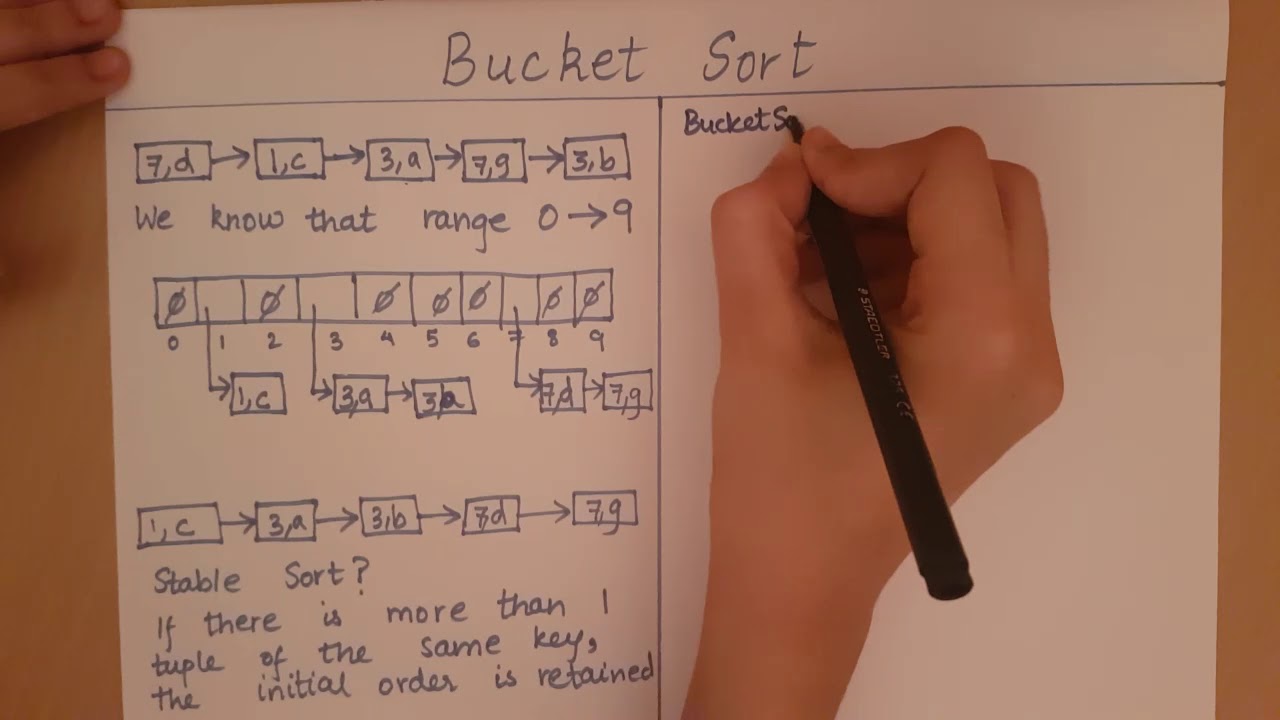 Bucket Sort
7,d → 1,c → 3,a → 7,g → 3,b
We know that range 0 → 9
∅ ∅ ∅ ∅ ∅ ∅ ∅
0 1 2 3 4 5 6 7 8 9
1,c 3,a → 3,b 7,d → 7,g
1,c → 3,a → 3,b → 7,d → 7,g
Stable Sort?
If there is more than 1
tuple of the same key,
the initial order is retained
BucketSo
STAEDTLER